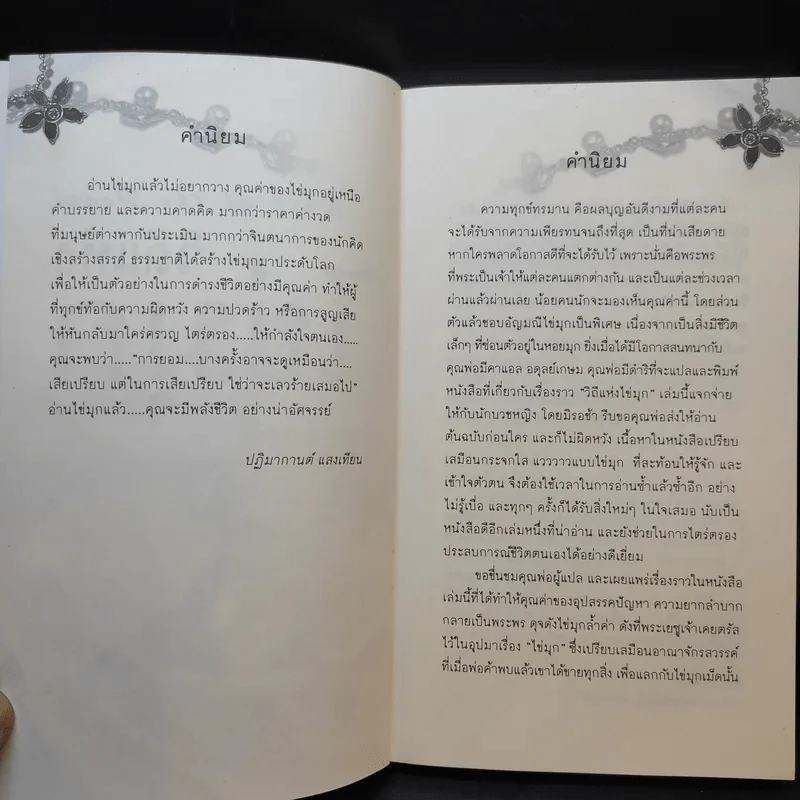 คำนิยม
อ่านไข่มุกแล้วไม่อยากวาง คุณค่าของไข่มุกอยู่เหนือ
คำบรรยาย และความคาดคิด มากกว่าราคาค่างวด
ที่มนุษย์ต่างพากันประเมิน มากกว่าจินตนาการของนักคิด
เชิงสร้างสรรค์ ธรรมชาติได้สร้างไข่มุกมาประดับโลก
เพื่อให้เป็นตัวอย่างในการดำรงชีวิตอย่างมีคุณค่า ทำให้ผู้
ที่ทุกข์ท้อกับความผิดหวัง ความปวดร้าว หรือการสูญเสีย
ให้หันกลับมาใคร่ครวญ ไตร่ตรอง.....ให้กำลังใจตนเอง.....
คุณจะพบว่า....."การยอม.....บางครั้งอาจจะดูเหมือนว่า....
เสียเปรียบ แต่ในการเสียเปรียบ ใช่ว่าจะเลวร้ายเสมอไป"
อ่านไข่มุกแล้ว.....คุณจะมีพลังชีวิต อย่างน่าอัศจรรย์
ปฏิมากานต์ แสงเทียน
คำนิยม
ความทุกข์ทรมาน คือผลบุญอันดีงามที่แต่ละคน
จะได้รับจากความเพียรทนจนถึงที่สุด เป็นที่น่าเสียดาย
หากใครพลาดโอกาสดีที่จะได้รับไว้ เพราะนั่นคือพระพร
ที่พระเป็นเจ้าให้แต่ละคนแตกต่างกัน และเป็นแต่ละช่วงเวลา
ผ่านแล้วผ่านเลย น้อยคนนักจะมองเห็นคุณค่านี้ โดยส่วน
ตัวแล้วชอบอัญมณีไข่มุกเป็นพิเศษ เนื่องจากเป็นสิ่งมีชีวิต
เล็กๆ ที่ซ่อนตัวอยู่ในหอยมุก ยิ่งเมื่อได้มีโอกาสสนทนากับ
คุณพ่อมีคาแอล อดุลย์เกษม คุณพ่อมีดำริที่จะแปลและพิมพ์
หนังสือที่เกี่ยวกับเรื่องราว "วิถีแห่งไข่มุก" เล่มนี้แจกจ่าย
ให้กับนักบวชหญิง โดยมิรอช้า รีบขอคุณพ่อส่งให้อ่าน
ต้นฉบับก่อนใคร และก็ไม่ผิดหวัง เนื้อหาในหนังสือเปรียบ
เสมือนกระจกใส แวววาวแบบไข่มุก ที่สะท้อนให้รู้จัก และ
เข้าใจตัวตน จึงต้องใช้เวลาในการอ่านซ้ำแล้วซ้ำอีก อย่าง
ไม่รู้เบื่อ และทุกๆ ครั้งก็ได้รับสิ่งใหม่ๆ ในใจเสมอ นับเป็น
หนังสือดีอีกเล่มหนึ่งที่น่าอ่าน และยังช่วยในการไตร่ตรอง
ประสบการณ์ชีวิตตนเองได้อย่างดีเยี่ยม
ขอชื่นชมคุณพ่อผู้แปล และเผยแพร่เรื่องราวในหนังสือ
เล่มนี้ที่ได้ทำให้คุณค่าของอุปสรรคปัญหา ความยากลำบาก
กลายเป็นพระพร ดุจดังไข่มุกล้ำค่า ดังที่พระเยซูเจ้าเคยตรัส
ไว้ในอุปมาเรื่อง "ไข่มุก" ซึ่งเปรียบเสมือนอาณาจักรสวรรค์
ที่เมื่อพ่อค้าพบแล้วเขาได้ขายทุกสิ่ง เพื่อแลกกับไข่มุกเม็ดนั้น